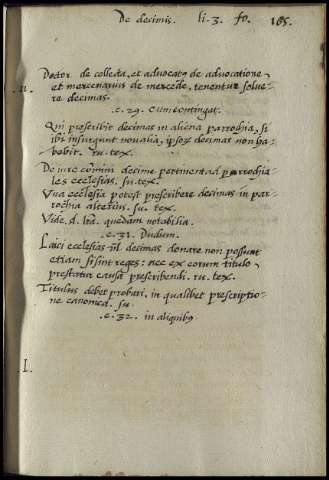 De decimis. li. 3. fo. 165.
Doctor de collecta, et advocatꝰ de advocatione,
et mercenarius de mercede, tenentur solve-
re decimas.
.II.
.c. 29. Cum contingat.
Qui proscribit decimas in aliena parrochia, si
ibi insurgunt novalia, ipsoꝝ decimas non ha-
bebit. ru. tex.
De iure co͠muni decime pertinent ad parrochia
les ecclesias. su. tex.
Vna ecclesia potest prescribere decimas in par-
rochia alterius. su. tex.
Vide .d. quedam notabilia.
.c. 31. Dudum.
Laici ecclesias vl decimas donare non possunt
etiam si sint reges: nec ex eorum titulo
prestatur causa prescribendi. ru. tex.
Titulus debet probari, in qualibet prescriptio-
ne canonica. su.
.c. 32. in aliquibꝰ
.I.